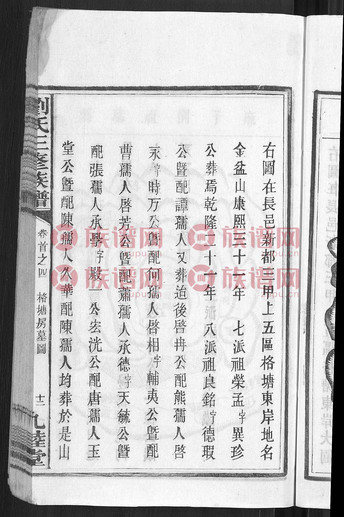 右圖在長邑新都三甲上五區楁塘東岸地名
金盆山康熙三十一年 七派祖榮孟字異珍
公葬焉乾隆二十一年 八派祖良銘字德瑕
公暨配譚孺人又葬道後啓冉公配熊孺人
永字時万公暨配何孺人啓相字輔夷公暨配
曹孺人啓芳公暨配蕭孺人承德字天毓公暨
配張孺人承學字殿 公宏洸公配唐孺人玉
堂公暨配陳孺人次華配陳孺人均葬於是山
劉氏三修族譜
卷首之四 楁塘房墓圖
十二 九睦堂